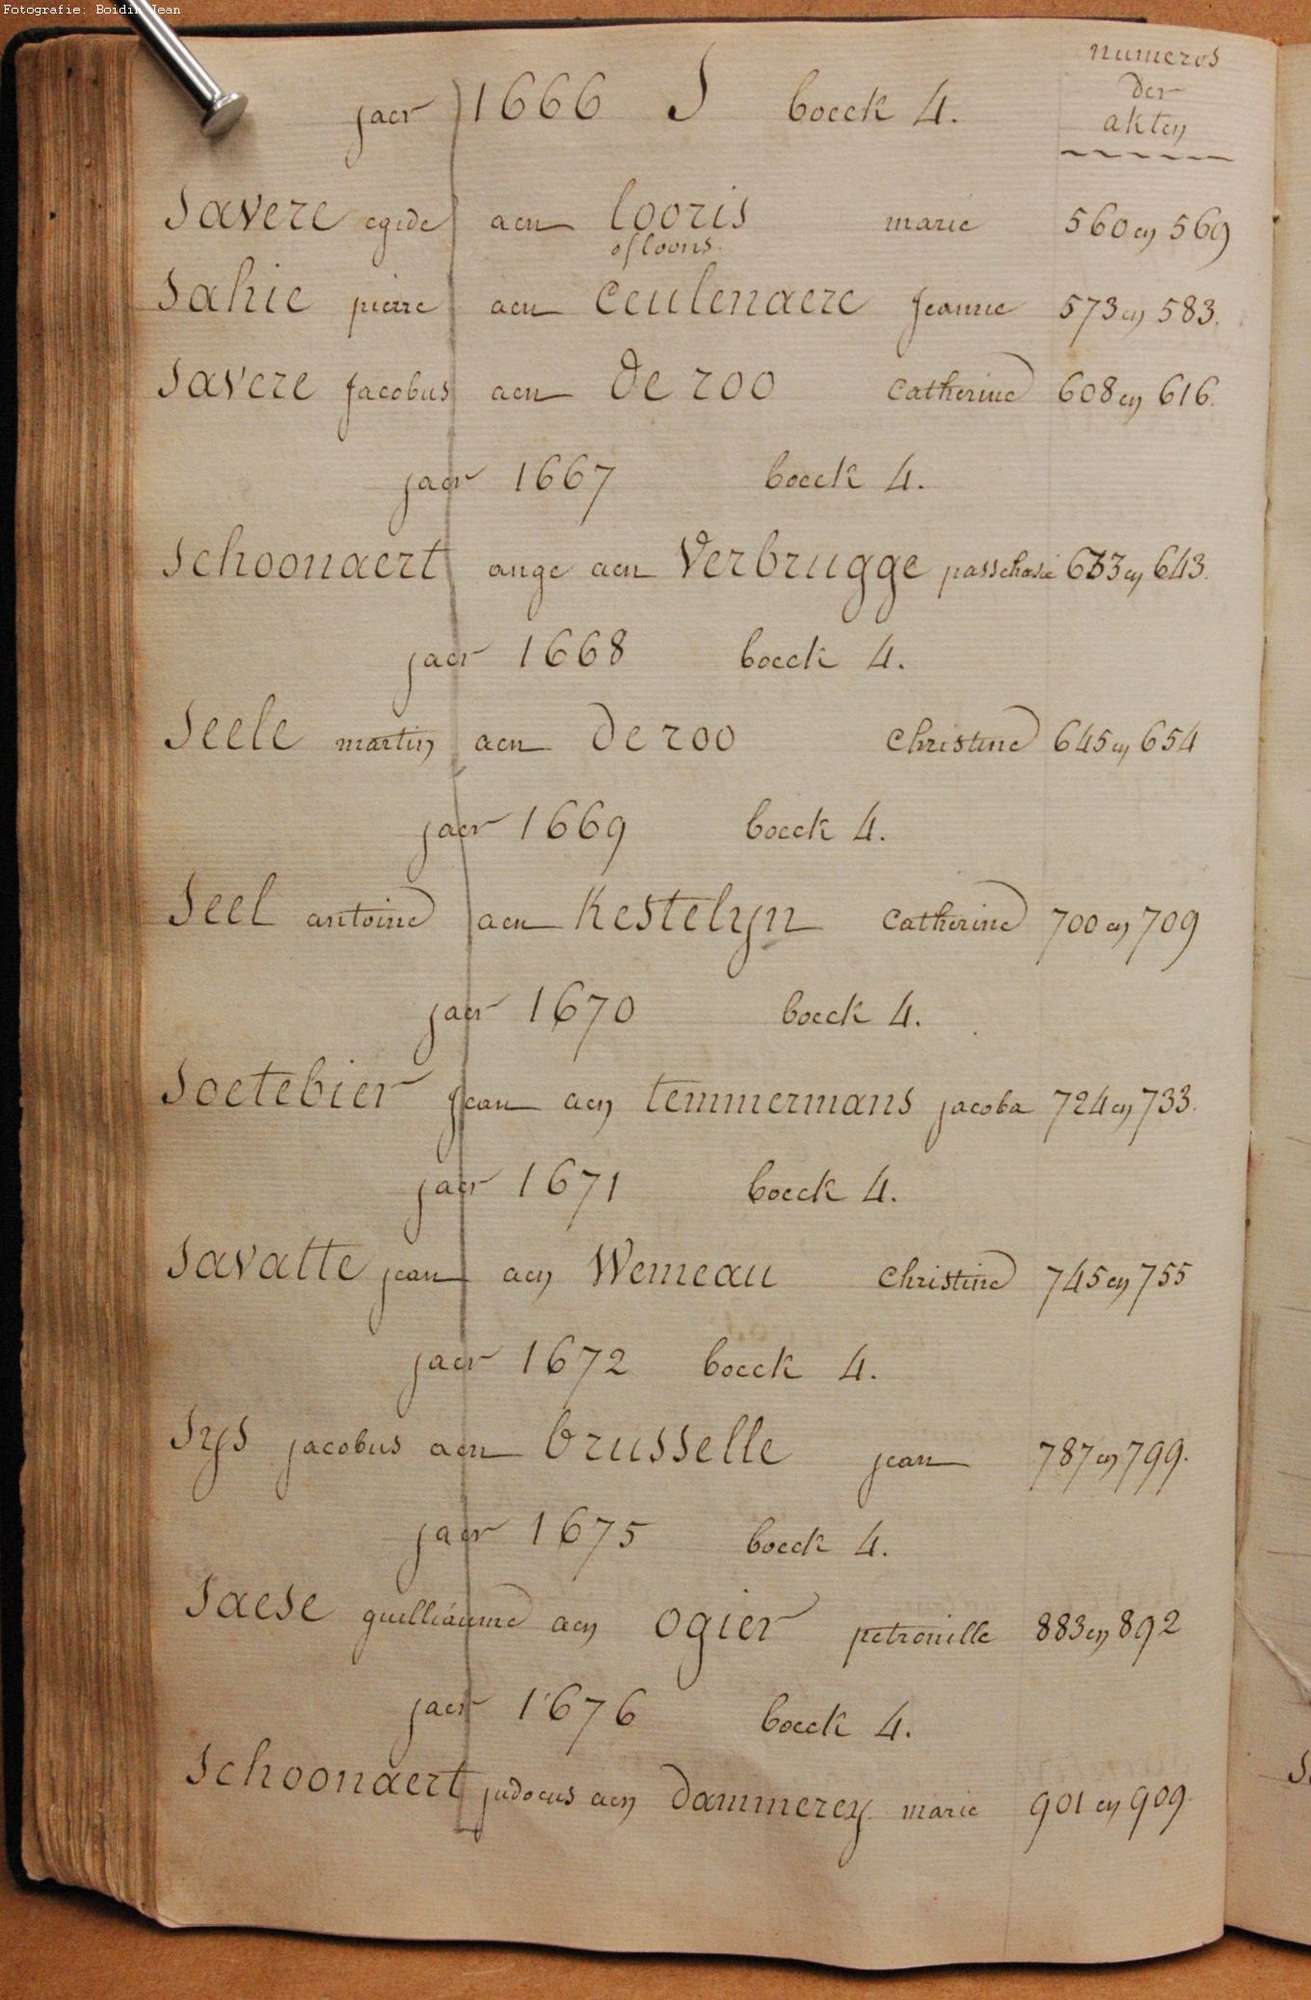 Fotografie: Boidin Jean
numeros
der
akten
jaer 1666 S boeck 4.
Savere egide aen looris marie 560 en 569
of loons.
Sahie pierre aen Ceulenaere Jeanne 573 en 583.
Savere Jacobus aen De roo Catherine 608 en 616.
jaer 1667 boeck 4.
Schoonaert ange aen Verbrugge passchasie 633 en 643.
jaer 1668 boeck 4.
Seele martin aen De roo Christine 645 en 654
jaer 1669 boeck 4.
Seel antoine aen Kestelyn Catherine 700 en 709
jaer 1670 boeck 4.
Soetebier Jean aen temmermans jacoba 724 en 733.
jaer 1671 boeck 4.
Savatte jean aen Wemeau Christine 745 en 755
jaer 1672 boeck 4.
Sys jacobus aen brusselle jean 787 en 799.
jaer 1675 boeck 4.
Saese guilliaume aen ogier petronille 883 en 892
jaer 1676 boeck 4.
Schoonaert judocus aen Dammerey marie 901 en 909.